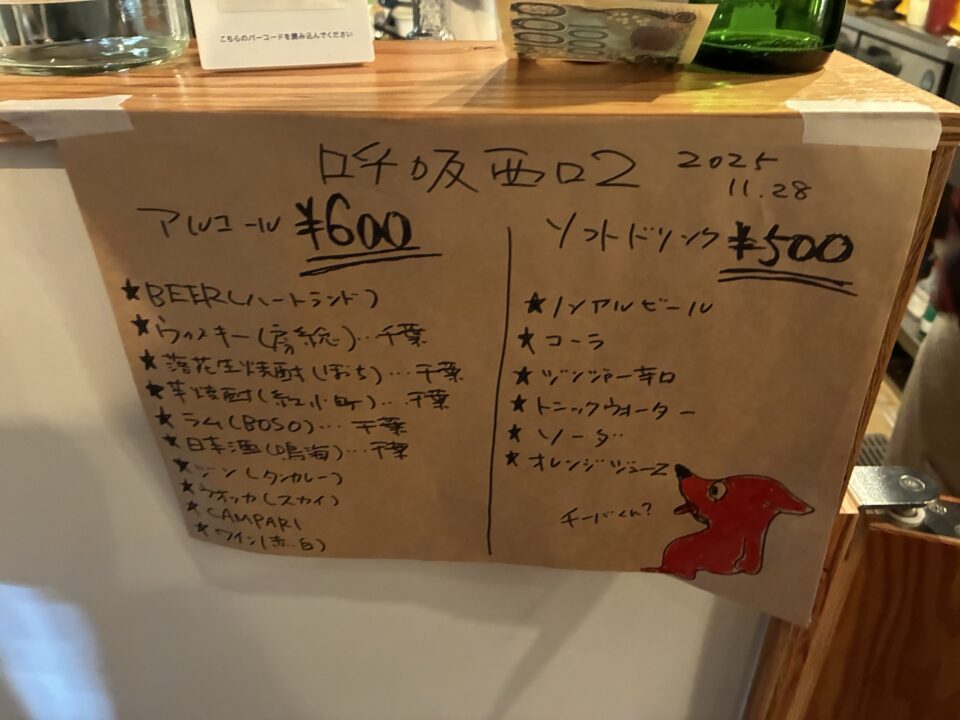 こちらのバーコードを読み込んでください
呼坂西口2 2025
11.28
アルコール ¥600
★BEER(ハートランド)
★ウィスキー(房総)…千葉
★落花生焼酎(ぼっち)…千葉
★芋焼酎(紅小町)…千葉
★ラム(BOSO)…千葉
★日本酒(鳴海)…千葉
★ジン(タンカレー)
★ウオッカ(スカイ)
★CAMPARI
★ワイン(赤・白)
ソフトドリンク ¥500
★ノンアルビール
★コーラ
★ジンジャー辛口
★トニックウォーター
★ソーダ
★オレンジジュース
チーバくん?